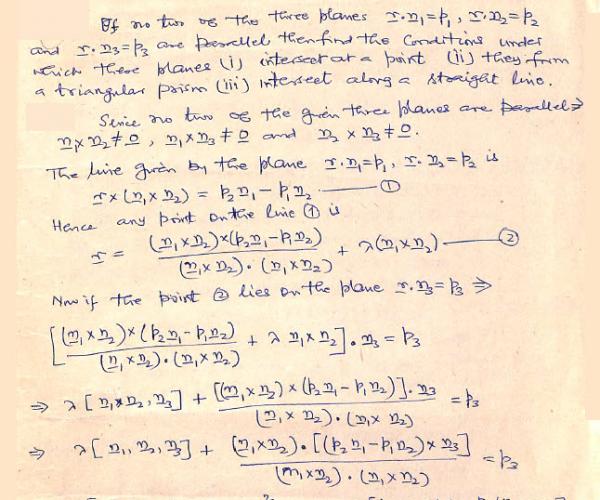 If no two of the three planes r.n₁=p₁, r.n₂=p₂
and r.n₃=p₃ are parallel then find the conditions under
which these planes (i) intersect at a point (ii) they form
a triangular prism (iii) intersect along a straight line.
Since no two of the given three planes are parallel ⇒
n₁×n₂≠0, n₁×n₃≠0 and n₂×n₃≠0.
The line given by the plane r.n₁=p₁, r.n₂=p₂ is
r×(n₁×n₂) = p₂n₁-p₁n₂ — ①
Hence any point on the line ① is
r = (n₁×n₂)×(p₂n₁-p₁n₂) / (n₁×n₂).(n₁×n₂) + λ(n₁×n₂) — ②
Now if the point ② lies on the plane r.n₃=p₃ ⇒
[(n₁×n₂)×(p₂n₁-p₁n₂) / (n₁×n₂).(n₁×n₂) + λ n₁×n₂].n₃=p₃
⇒ λ[n₁×n₂,n₃] + [(n₁×n₂)×(p₂n₁-p₁n₂)].n₃ / (n₁×n₂).(n₁×n₂) =p₃
⇒ λ[n₁,n₂,n₃] + (n₁×n₂).[(p₂n₁-p₁n₂)×n₃] / (n₁×n₂).(n₁×n₂) =p₃